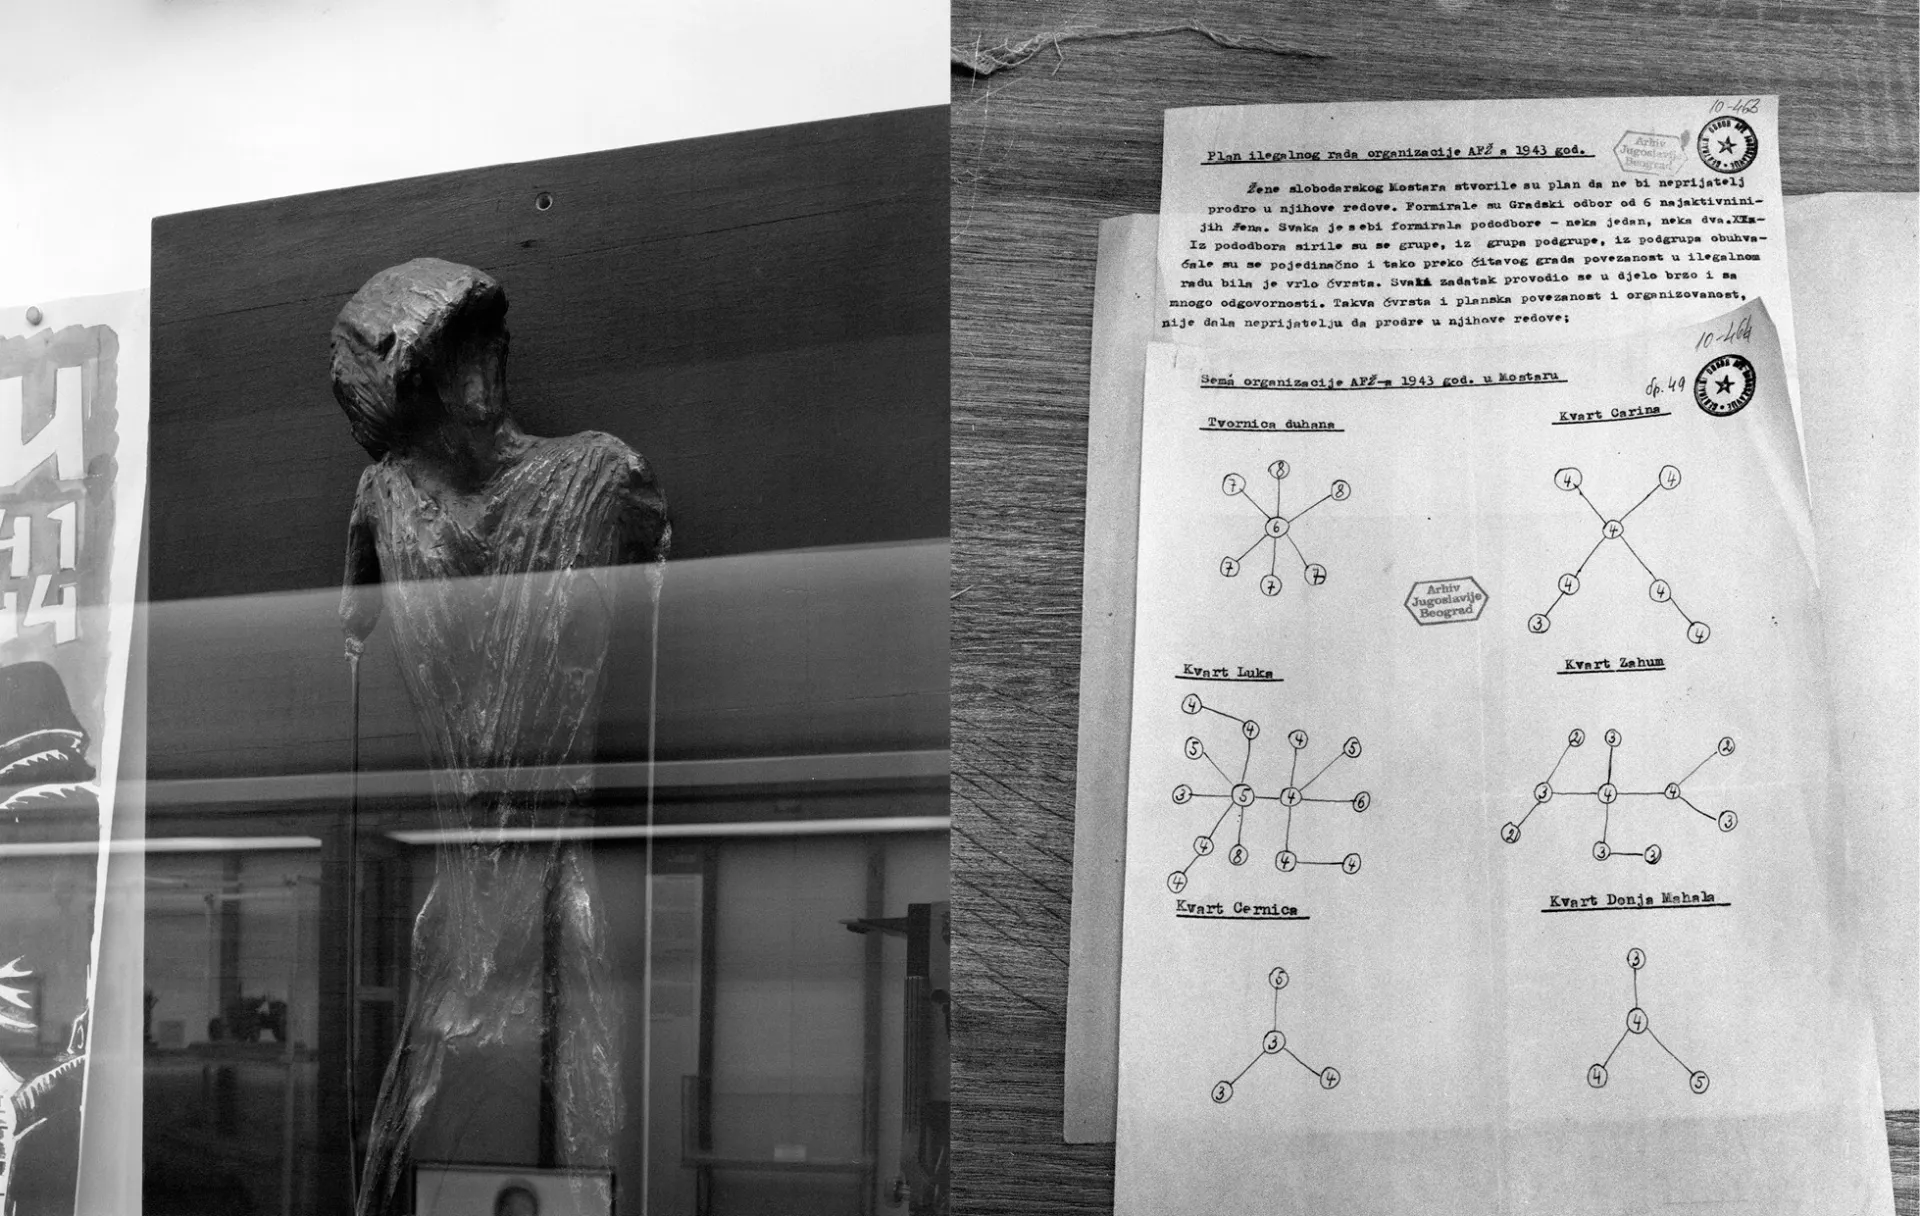 И
41
44
10-463
Plan ilegalnog rada organizacije AFŽ a 1943 god.
Arhiv
Jugoslavije
Beograd
Žene slobodarskog Mostara stvorile su plan da ne bi neprijatelj
prodro u njihove redove. Formirale su Gradski odbor od 6 najaktivnini-
jih žena. Svaka je sebi formirala pododbore - neka jedan, neka dva.
Iz pododbora sirile su se grupe, iz grupa podgrupe, iz podgrupa obuhva-
ćale su se pojedinačno i tako preko čitavog grada povezanost u ilegalnom
radu bila je vrlo čvrsta. Svaki zadatak provodio se u djelo brzo i sa
mnogo odgovornosti. Takva čvrsta i planska povezanost i organizovanost,
nije dala neprijatelju da prodre u njihove redove;
10-464
Šema organizacije AFŽ-a 1943 god. u Mostaru
dp. 49
Tvornica duhana
Kvart Carina
7 8 8
6
7 7 7
4 4
4
4 4
3 4
Arhiv
Jugoslavije
Beograd
Kvart Luka
Kvart Zahum
4
4 4 5
5
3 5 4 6
4 8 4 4
4
2 3 2
3 4 4
2 3
3 3
Kvart Cernica
Kvart Donja Mahala
5
3
3 4
3
4
4 5